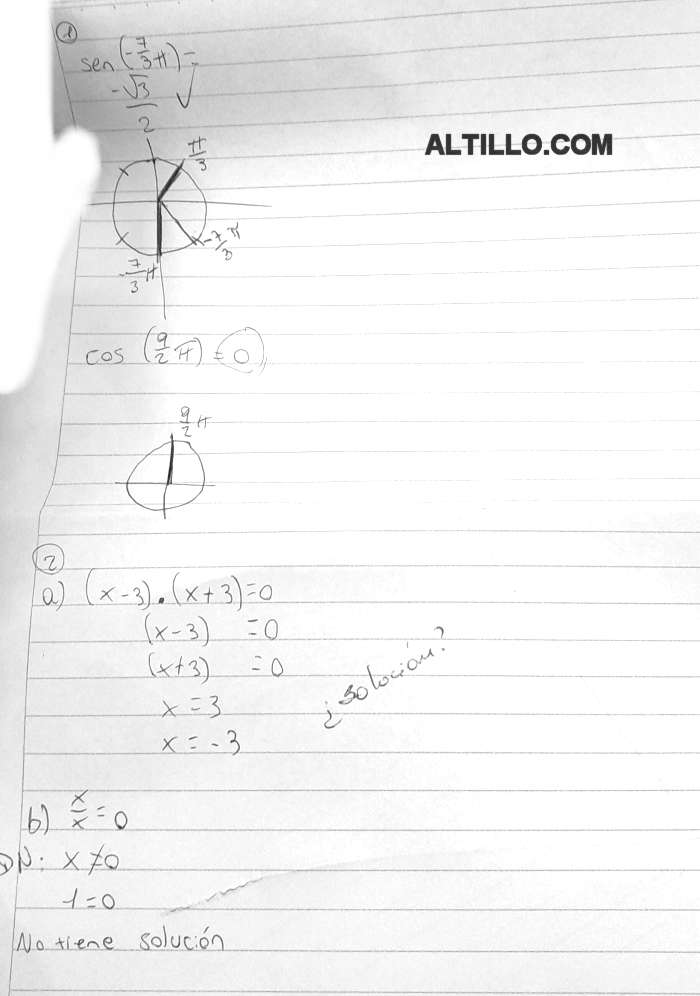 1
sen (-7/3 π) =
-√3/2 ✓
ALTILLO.COM
π/3
-7/3 π
-7/3 π
cos (9/2 π) = 0
9/2 π
2
a) (x-3).(x+3)=0
(x-3) =0
(x+3) =0
¿solución?
x = 3
x = -3
b) x/x = 0
N: x ≠ 0
1=0
No tiene solución